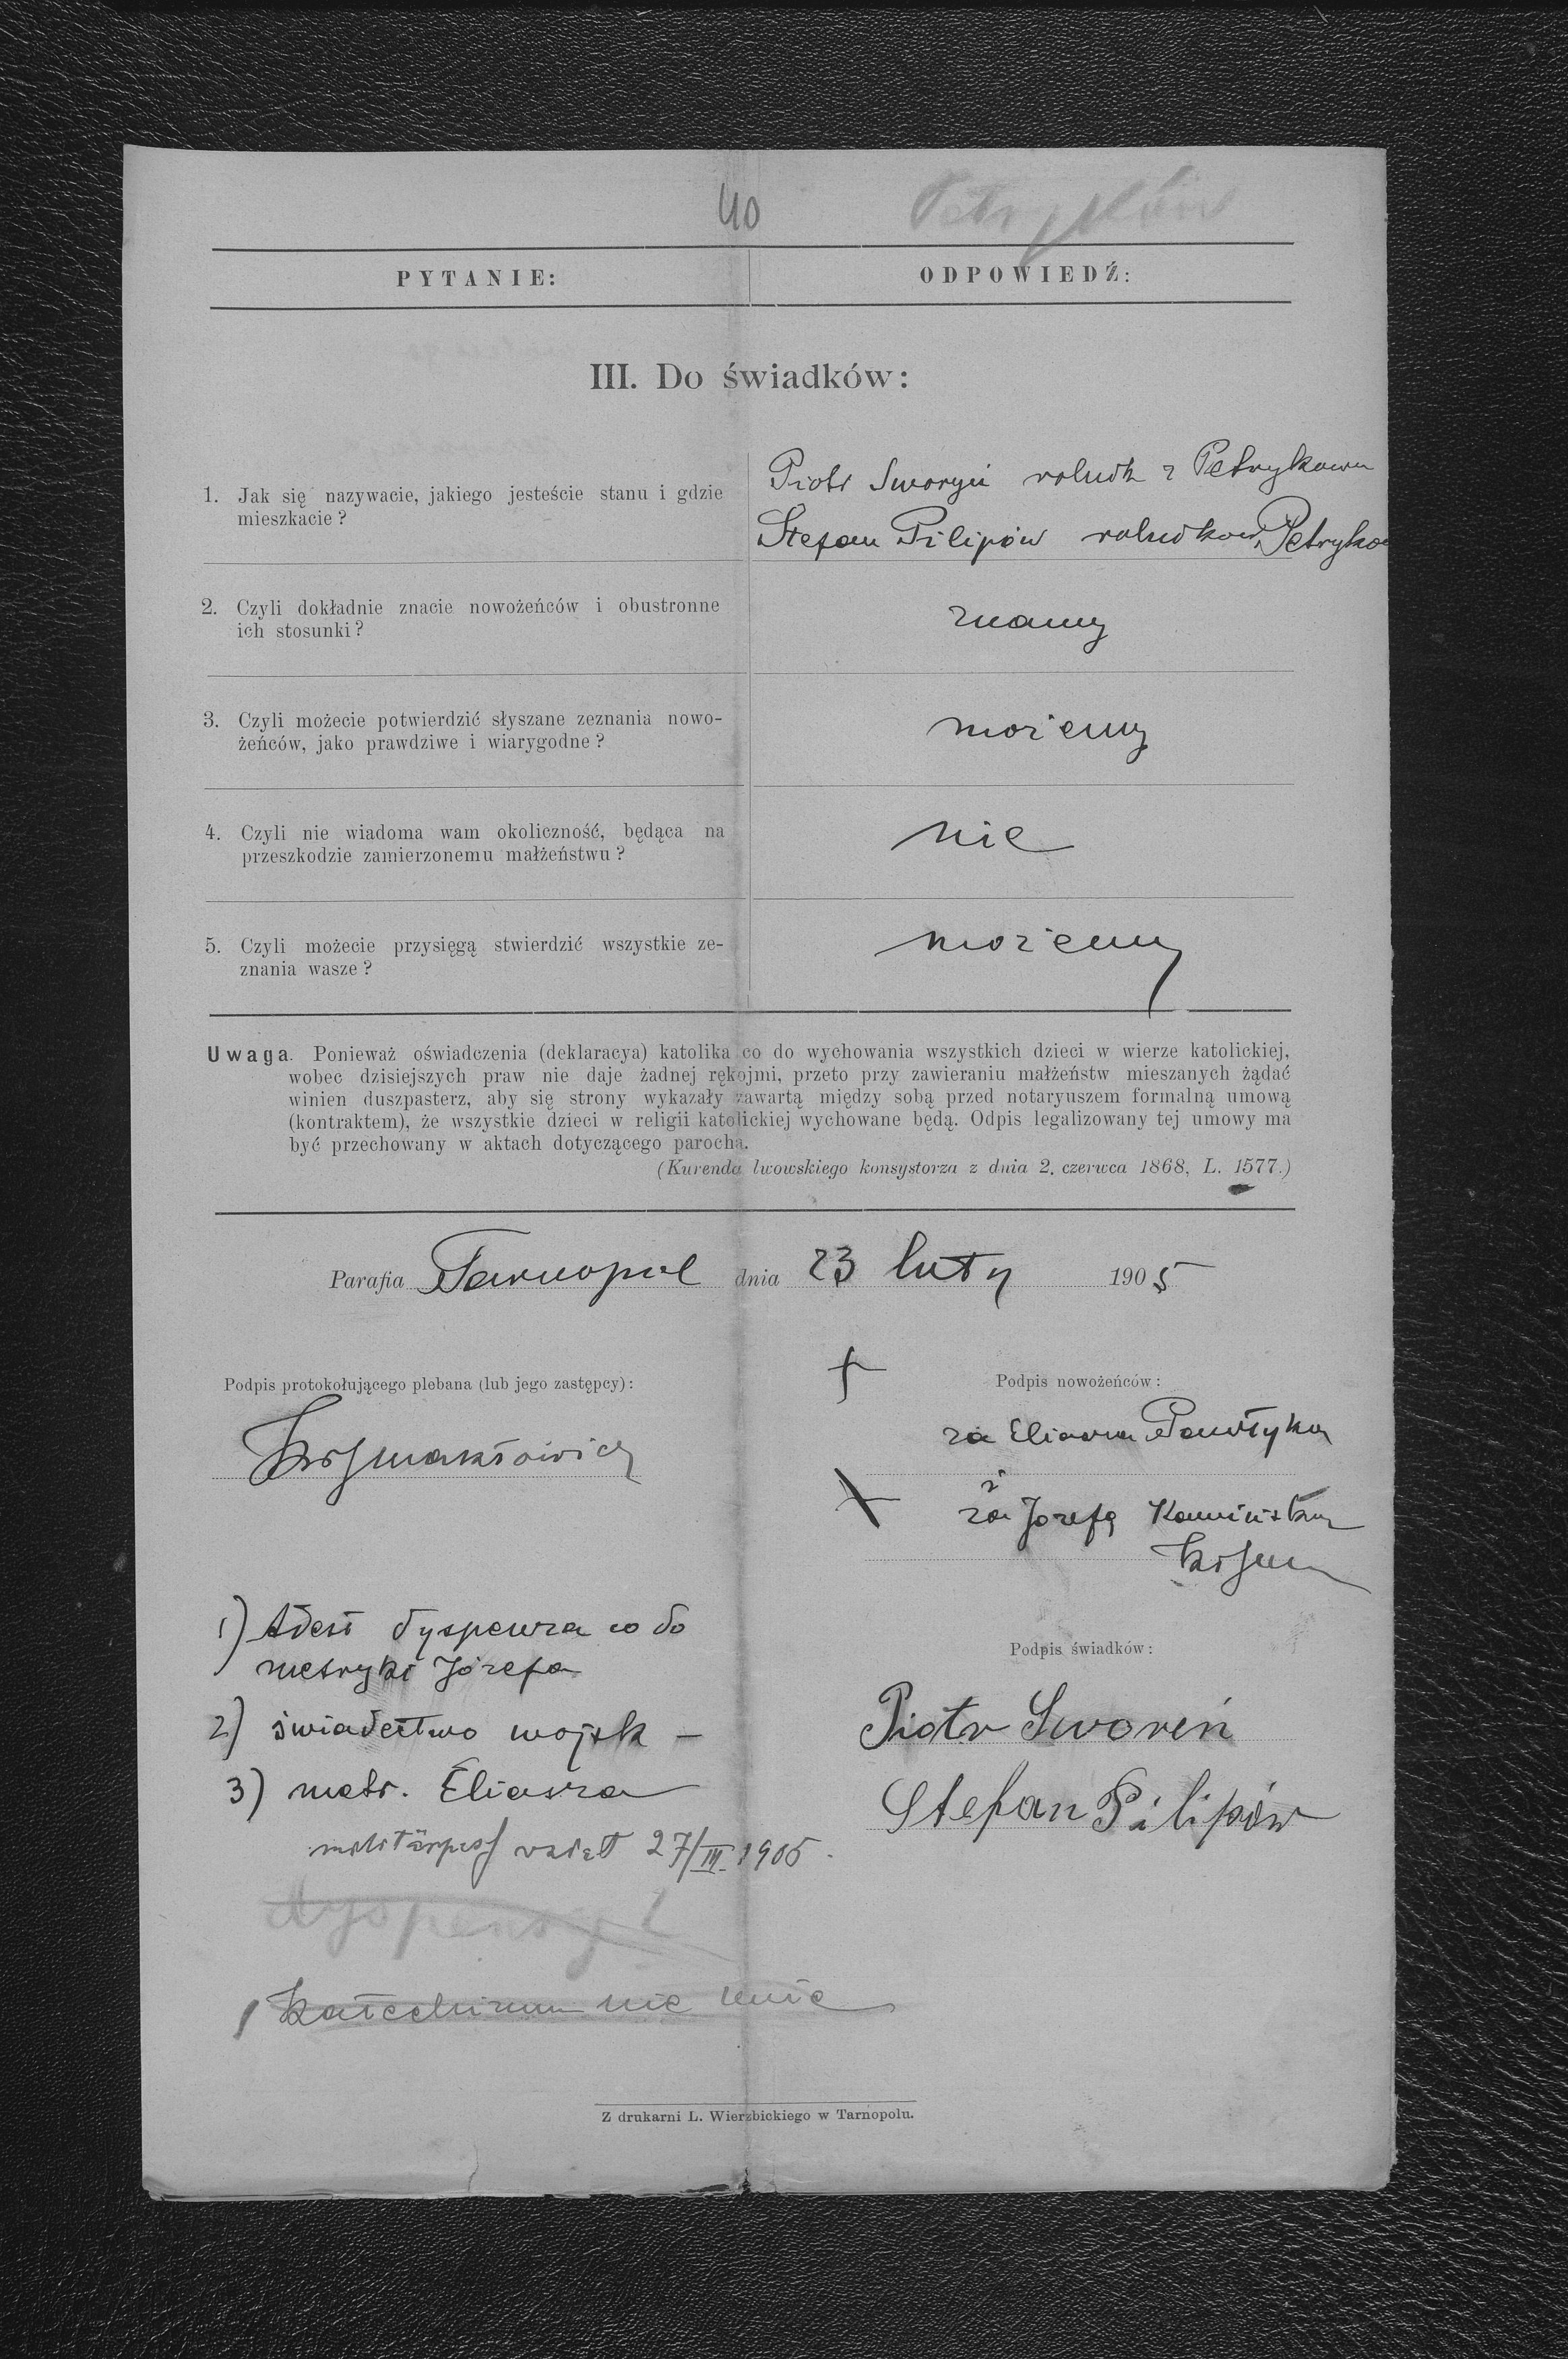 40 Petryków
PYTANIE: ODPOWIEDŹ:
III. Do świadków:
1. Jak się nazywacie, jakiego jesteście stanu i gdzie
mieszkacie?
Piotr Sworyń rolnik z Petrykowa
Stefan Pilipów Petryko
2. Czyli dokładnie znacie nowożeńców i obustronne
ich stosunki?
znamy
3. Czyli możecie potwierdzić słyszane zeznania nowo-
żeńców, jako prawdziwe i wiarygodne?
możemy
4. Czyli nie wiadoma wam okoliczność, będąca na
przeszkodzie zamierzonemu małżeństwu?
nie
5. Czyli możecie przysięgą stwierdzić wszystkie ze-
znania wasze?
możemy
Uwaga. Ponieważ oświadczenia (deklaracya) katolika co do wychowania wszystkich dzieci w wierze katolickiej,
wobec dzisiejszych praw nie daje żadnej rękojmi, przeto przy zawieraniu małżeństw mieszanych żądać
winien duszpasterz, aby się strony wykazały zawartą między sobą przed notaryuszem formalną umową
(kontraktem), że wszystkie dzieci w religii katolickiej wychowane będą. Odpis legalizowany tej umowy ma
być przechowany w aktach dotyczącego parocha.
(Kurenda lwowskiego konsystorza z dnia 2. czerwca 1868, L. 1577.)
Parafia Tarnopol dnia 23 luty 1905
Podpis protokołującego plebana (lub jego zastępcy):
Podpis nowożeńców:
za Eliasza
za Józefę Kamińską
1) Adest dyspenza co do
metryki Józefa
2) świadectwo wojsk –
3) metr. Eliasza
militärpass wziął 27/III 1905.
dyspensy
Katechizmu nie umie
Podpis świadków:
Piotr Sworeń
Stefan Pilipów
Z drukarni L. Wierzbickiego w Tarnopolu.